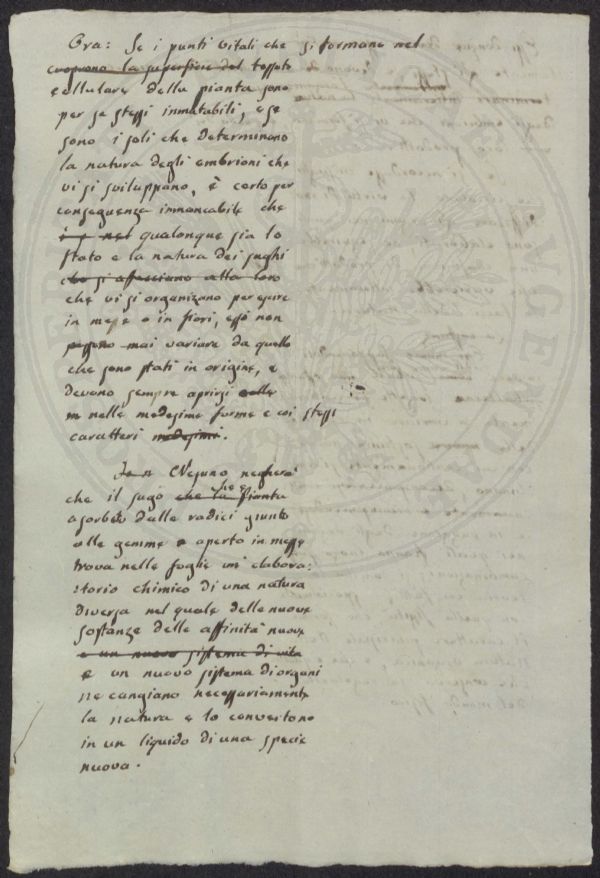 Ora: Se i punti vitali che si formano nel
cuoprono la superficie del tessuto
cellulare della pianta sono
per se stessi inmutabili, e se
sono i soli che determinano
la natura degli embrioni che
vi si sviluppano, è certo per
conseguenza immancabile che
qualonque sia lo
stato e la natura dei sughi
che si affacciano alla loro
che vi si organizano per
in messe o in fiori, essi non
possono mai variare da quello
che sono stati in origine, e
devono sempre aprirsi nelle
nelle medesime forme e coi stessi
caratteri medesimi.
Nesuno negherà
che il sugo che la pianta
assorbito dalle radici giunto
alle gemme e aperto in messe
trova nelle foglie un' elabora:
:torio chimico di una natura
diversa nel quale delle nuove
sostanze delle affinità nuove
e un nuovo sistema di vita
e un nuovo sistema di organi
ne cangiano necessariamente
la natura e lo convertono
in un liquido di una specie
nuova.